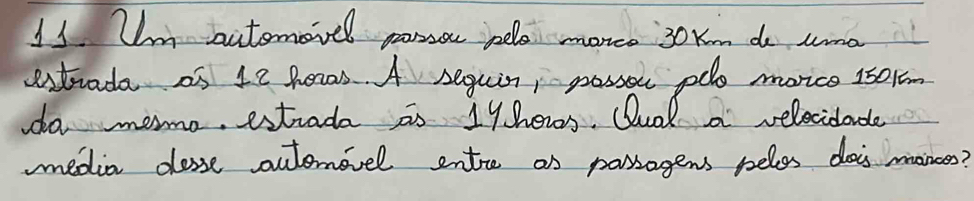 11. Um automóvel passou pelo marco 30 Km de uma
estrada as 12 horas. A seguir, passou pelo marco 150 Km
da mesma. estrada ás 14 horas. Qual a velocidade
média desse automóvel entre as passagens pelos dois marcos?